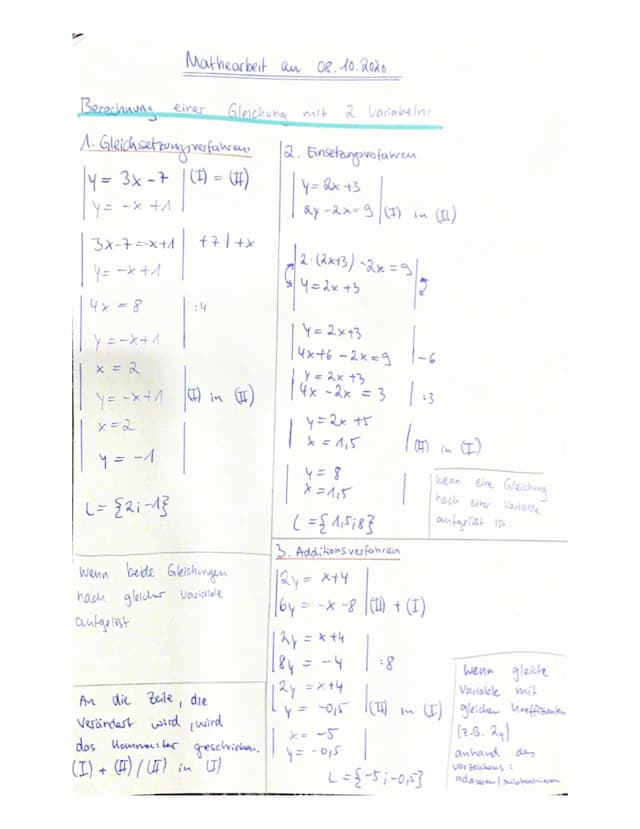 Mathearbeit am 08.10.2020
Berechnung einer Gleichung mit 2 Variabeln:
1. Gleichsetzungsverfahren:
y = 3x - 7 | (I) = (II)
y = -x + 1
3x - 7 = -x + 1 | +7 | +x
y = -x + 1
4x = 8 | :4
y = -x + 1
x = 2
y = -x + 1 | (I) in (II)
x = 2
y = -1
L = {2; -1}
Wenn beide Gleichungen
nach gleicher Variable
aufgelöst
An die Zeile, die
verändert wird, wird
das Kommentar geschrieben.
(I) + (II) / (II) in (I)
2. Einsetzungsverfahren
y = 2x + 3
2y - 2x = 9 | (I) in (II)
2 · (2x+3) - 2x = 9
y = 2x + 3
y = 2x + 3
4x + 6 - 2x = 9 | -6
y = 2x + 3
4x - 2x = 3 | :3
y = 2x + 5
x = 1,5 | (II) in (I)
y = 8
x = 1,5
L = {1,5; 8}
Wenn eine Gleichung
nach einer Variable
aufgelöst ist.
3. Additionsverfahren
2y = x + 4
6y = -x - 8 | (II) + (I)
2y = x + 4
8y = -4 | :8
2y = x + 4
y = -0,5 | (II) in (I)
x = -5
y = -0,5
L = {-5; -0,5}
Wenn gleiche
Variable mit
gleichen Koeffizienten
(z.B. 2y)
anhand des
Vorzeichens:
addieren/subtrahieren